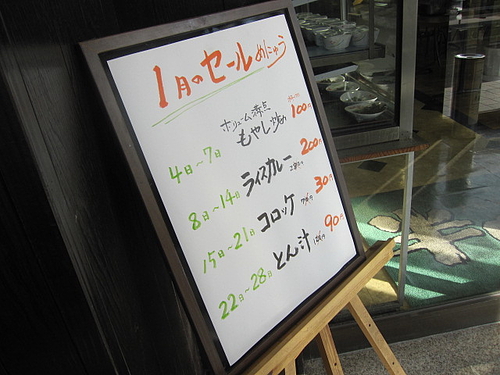 1月のセールめにゅう
ボリューム満点
4日～7日 もやし炒め 100円
8日～14日 ライスカレー 200円
15日～21日 コロッケ 30円
22～28日 とん汁 90円